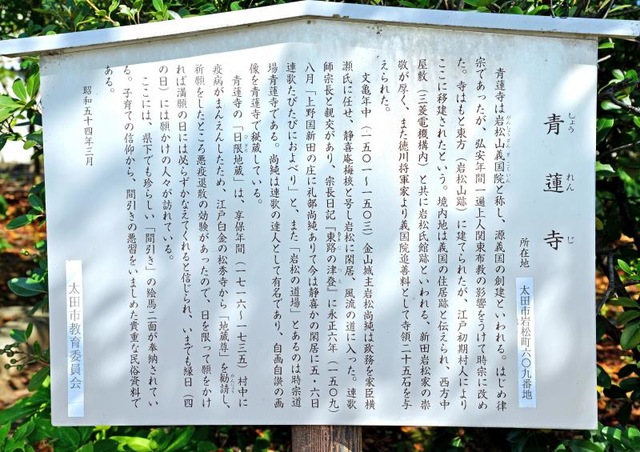 青蓮寺
しょう れん じ
所在地 太田市岩松町六〇九番地
青蓮寺は岩松山義国院と称し、源義国の創建といわれる。はじめ律
宗であったが、弘安年間一遍上人関東布教の影響をうけて時宗に改め
た。寺はもと東方（岩松山跡）に建てられたが、江戸初期村人により
ここに移建されたという。境内地は義国の住居跡と伝えられ、西方中
屋敷（三菱電機構内）と共に岩松氏館跡といわれる、新田岩松家の崇
敬が厚く、また徳川将軍家より義国院追善料として寺領二十五石を与
えられた。
文亀年中（一五〇一～一五〇三）金山城主岩松尚純は政務を家臣横
瀬氏に任せ、静喜庵梅核と号し岩松に閑居、風流の道に入った。連歌
師宗長と親交があり、宗長日記『東路の津登』に永正六年（一五〇九）
八月「上野国新田の庄に礼部尚純ありて今は静喜かの閑居に五・六日
連歌たびたびにおよべり」と、また「岩松の道場」とあるのは時宗道
場青蓮寺である。尚純は連歌の達人として有名であり、自画自讃の画
像を青蓮寺で秘蔵している。
青蓮寺の「日限地蔵」は、享保年間（一七一六～一七三五）村中に
疫病がまんえんしたため、江戸白金の松秀寺から「地蔵尊」を勧請し、
祈願をしたところ悪疫退散の効験があったので、日を限って願をかけ
れば満願の日には必らずかなえてくれると信じられ、いまでも縁日（四
の日）には願かけの人々が訪れている。
ここには、県下でも珍らしい「間引き」の絵馬二面が奉納されてい
る。子育ての信仰から、間引きの悪習をいましめた貴重な民俗資料で
ある。
昭和五十四年三月
太田市教育委員会